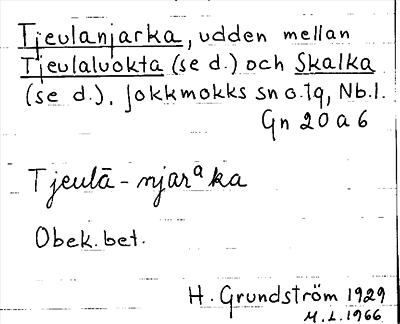 Tjeulanjarka, udden mellan
Tjeulaluokta (se d.) och Skalka
(se d.), Jokkmokks sn o. tg, Nb.l.
Gn 20 a 6
Tjeulā-njarᵃka
Obek. bet.
H. Grundström 1929
M.L. 1966